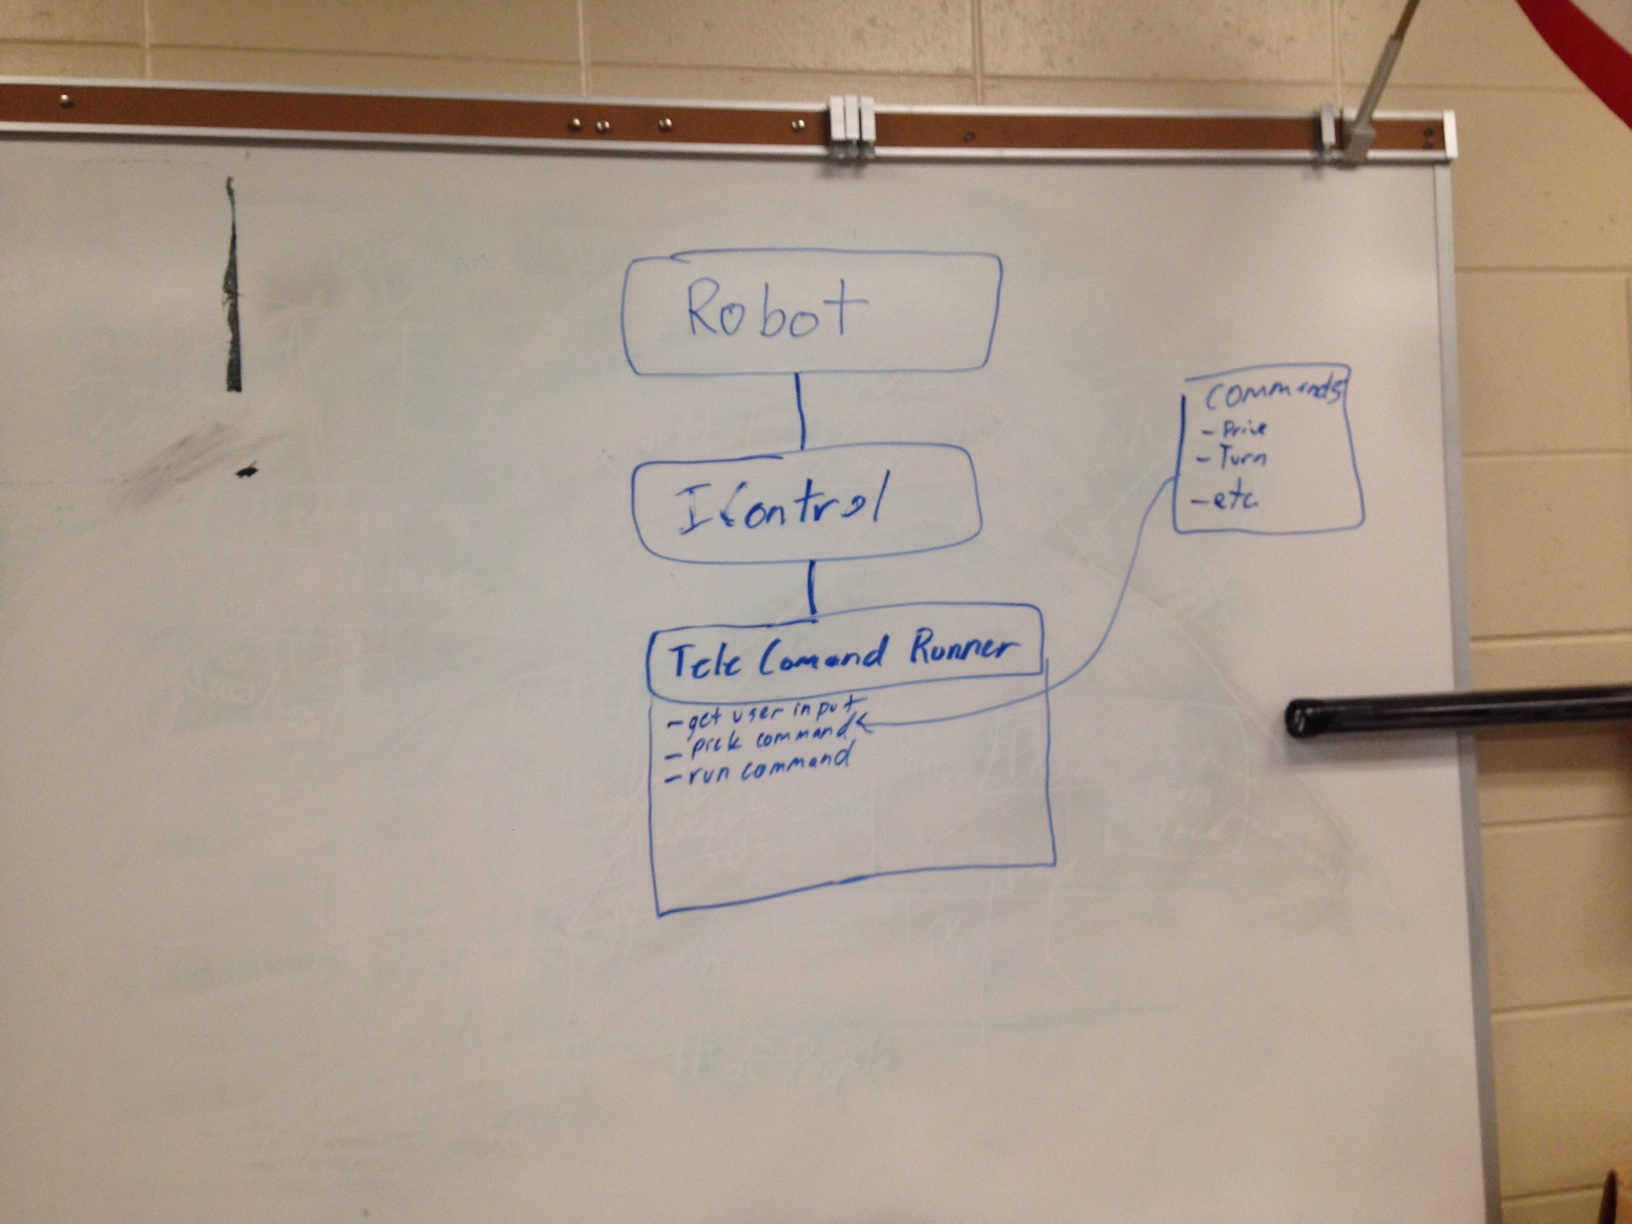 Robot
IControl
Tele Comand Runner
- get user input
- pick command
- run command
Commands
- Drive
- Turn
- etc